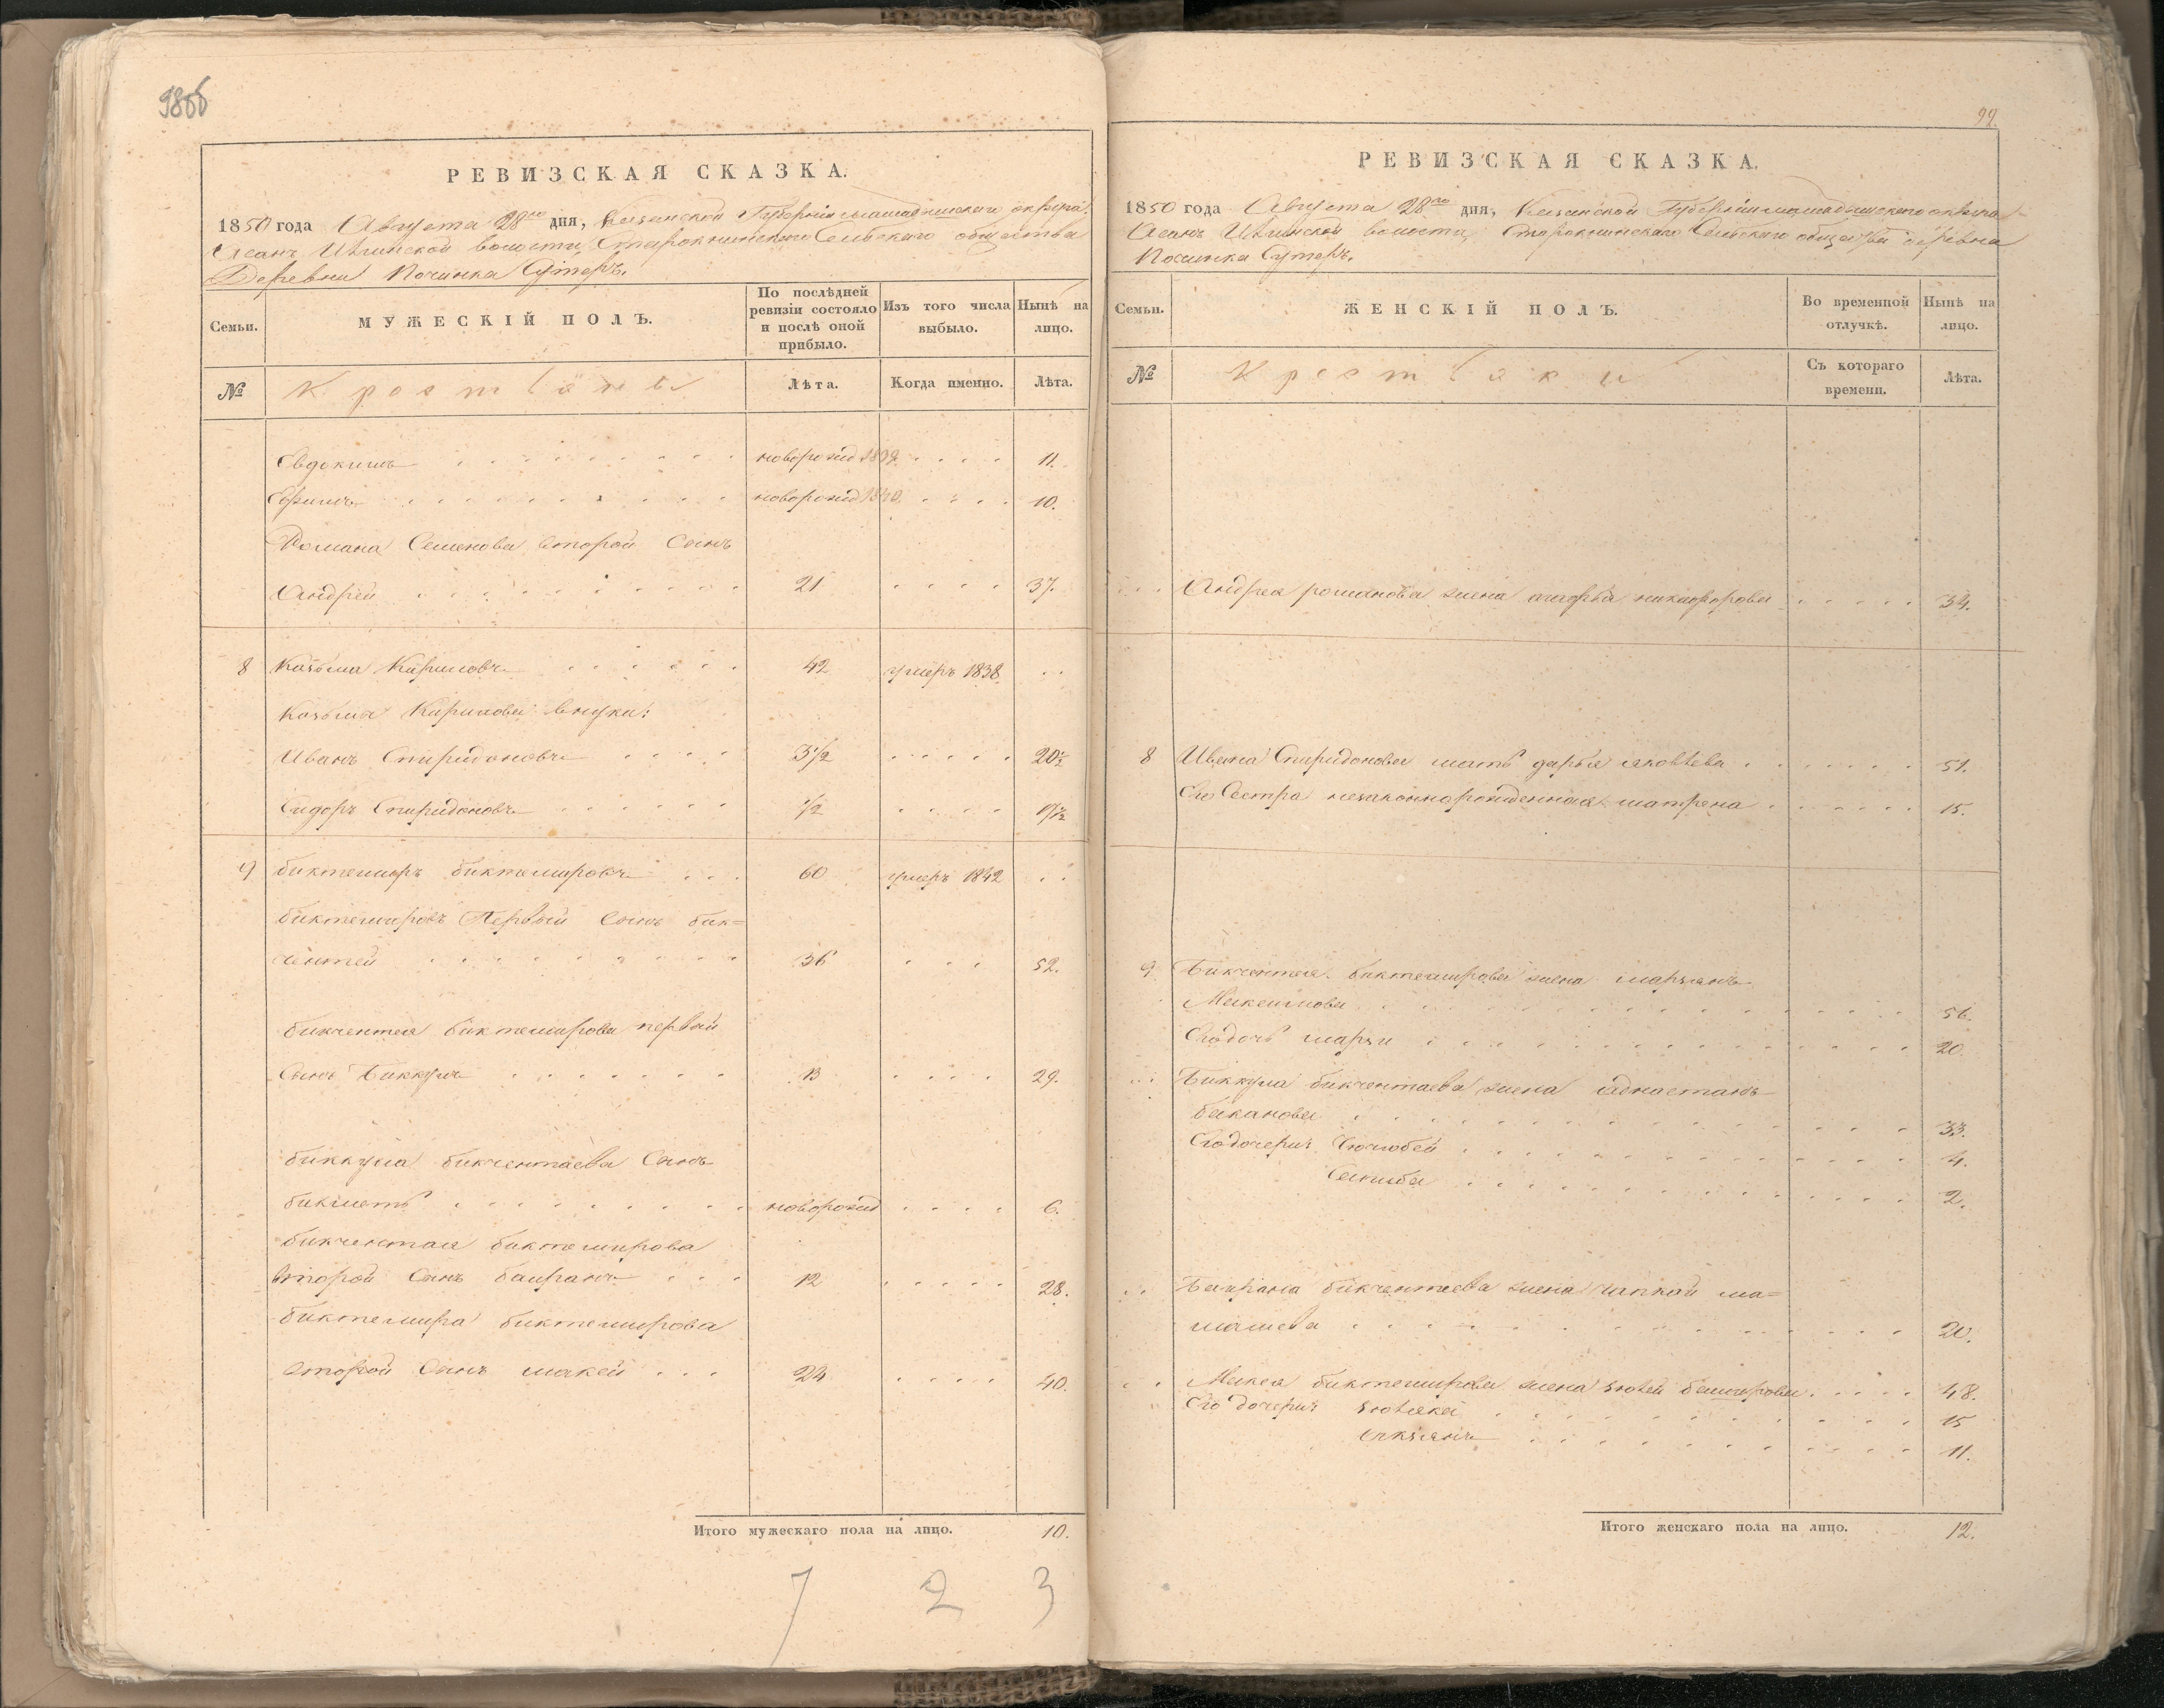 98об
РЕВИЗСКАЯ СКАЗКА.
1850 года Августа 28го дня, Казанской Губернии мамадышскаго округа
Асанъ Илгинской волости, Сельскаго общества
Деревни Починка Сутеръ.
Семьи.
МУЖЕСКІЙ ПОЛЪ.
По послѣдней ревизіи состояло и послѣ оной прибыло.
Изъ того числа выбыло.
Нынѣ на лицо.
№
Крестьяне
Лѣта.
Когда именно.
Лѣта.
Евдокимъ новорожд 1839. 11.
Ефимъ новорожд 1840. 10.
Романа Семенова второй Сынъ
Андрей 21 37.
8 Козьма Кириловъ 42 умеръ 1838.
Козьма Кирилова внуки:
Иванъ Спиридоновъ 3 1/2 20 1/2
Сидоръ Спиридоновъ 1/2 17 1/2
9 биктемиръ биктемировъ 60 умеръ 1842
биктемировъ Первый Сынъ бик=
чентей 36 52.
бикчентея биктемирова первый
Сынъ Биккулъ 13 29.
биккула бикчентаева Сынъ
бикметь новорожд 6.
бикчентая биктемирова
второй Сынъ баиранъ 12 28.
биктемира биктемирова
второй Сынъ макей 24 40.
Итого мужескаго пола на лицо. 10.
7 2 3
99.
РЕВИЗСКАЯ СКАЗКА.
1850 года Августа 28го дня, Казанской Губерніи мамадышскаго округа
Асанъ Илгинской волости, Сельскаго общества деревна
Починка Сутеръ.
Семьи.
ЖЕНСКІЙ ПОЛЪ.
Во временной отлучкѣ.
Нынѣ на лицо.
№
Крестьяки
Съ котораго времени.
Лѣта.
Андрея романова жена марфа никифорова 34.
8 Ивана Спиридонова мать дарья яковлева 51.
Его Сестра незаконнорожденная матрена 15.
9 Бикчентея биктемирова жена марзянъ
Макеимова 56.
Егодочь марзи 20.
Биккула бикчентаева жена
баканова 33.
Егодочери: 4.
2.
Баирана бикчентаева жена чапкай ма=
машева 20.
Макея биктемирова жена баширова 48.
Его дочери: 15
11.
Итого женскаго пола на лицо. 12.